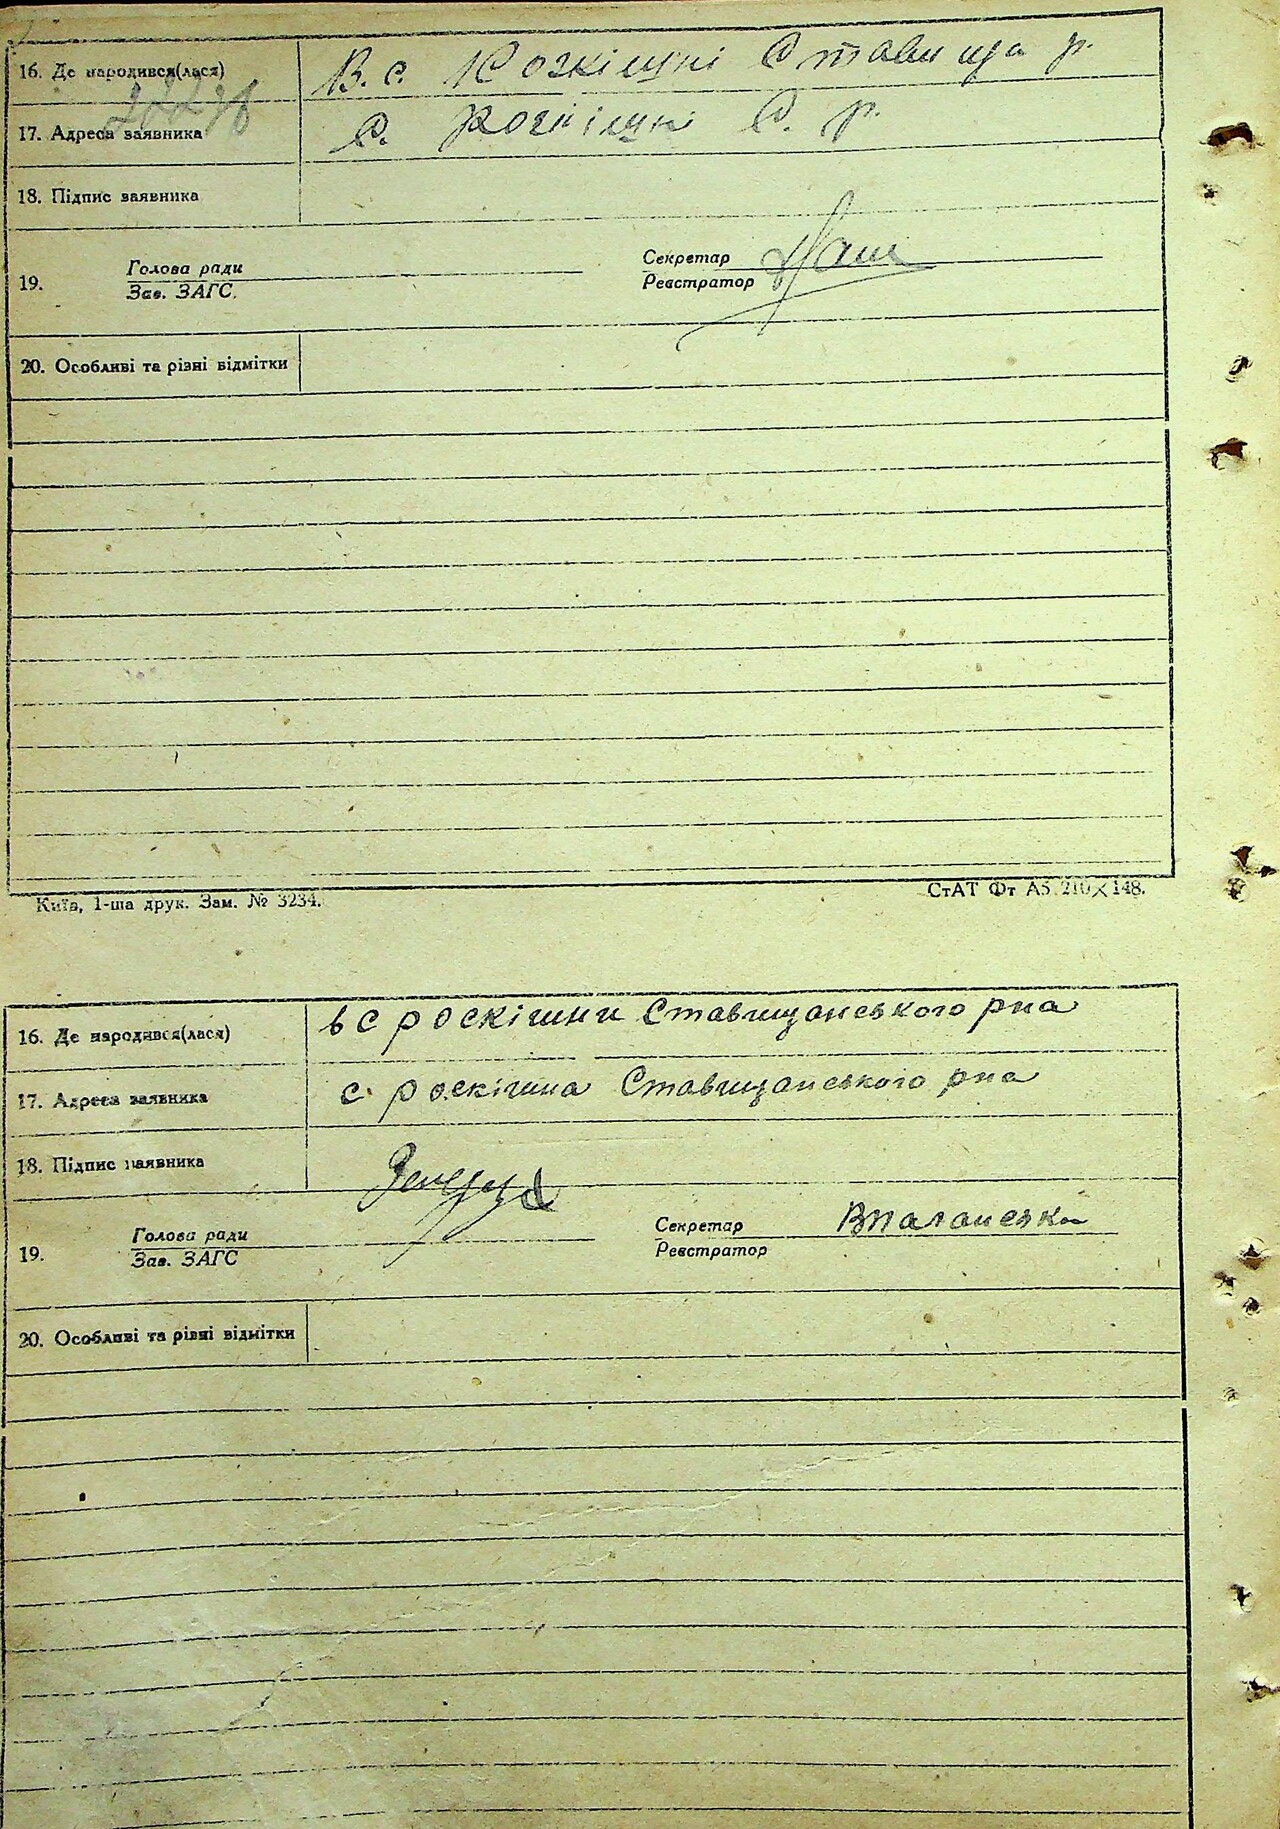 16. Де народився(лася) В. с. Розкішні Ставища р.
17. Адреса заявника с. Розкішні С. р.
18. Підпис заявника
Голова ради Секретар
19.
Зав. ЗАГС. Реєстратор
20. Особливі та різні відмітки
Київ, 1-ша друк. Зам. № 3234. СтАТ Фт А5 210×148.
16. Де народився(лася) в с роскішни Ставищанського рна
17. Адреса заявника с. роскішна Ставищанського рна
18. Підпис заявника
Голова ради Секретар
19.
Зав. ЗАГС Реєстратор
20. Особливі та різні відмітки